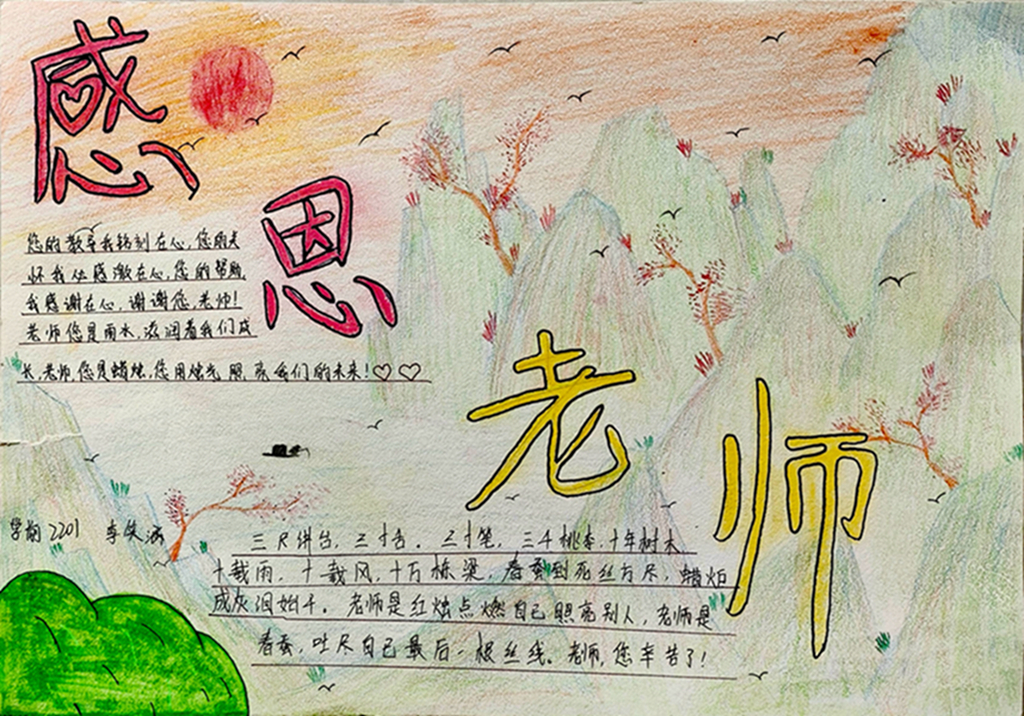 感
恩
您的教导我铭刻在心,您的关
怀我感激在心,您的帮助,
我感谢在心,谢谢您,老师!
老师您是雨水,滋润着我们成
长,老师,您是蜡烛,您用烛光照亮我们的未来!♡♡
老
师
学前2201 李
三尺讲台,三寸舌。三寸笔,三千桃李,十年树木
十载雨,十载风,十万栋梁,春蚕到死丝方尽,蜡炬
成灰泪始干。老师是红烛点燃自己照亮别人,老师是
春蚕,吐尽自己最后一根丝线。老师,您辛苦了!